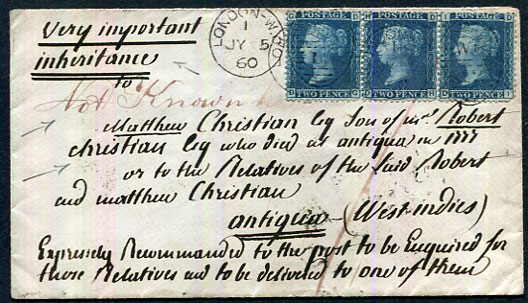 Very important
inheritance
to
Not Known
Matthew Christian Esq Son of mrs Robert
Christian Esq who died at antigua in 1777
or to the Relatives of the said Robert
and matthew Christian
antigua — (West indies)
Expressly Recommanded to the post to be Enquired for
those Relatives and to be delivered to one of them
LONDON-W
1
JY 5
60
POSTAGE
TWO PENCE
POSTAGE
TWO PENCE
POSTAGE
TWO PENCE